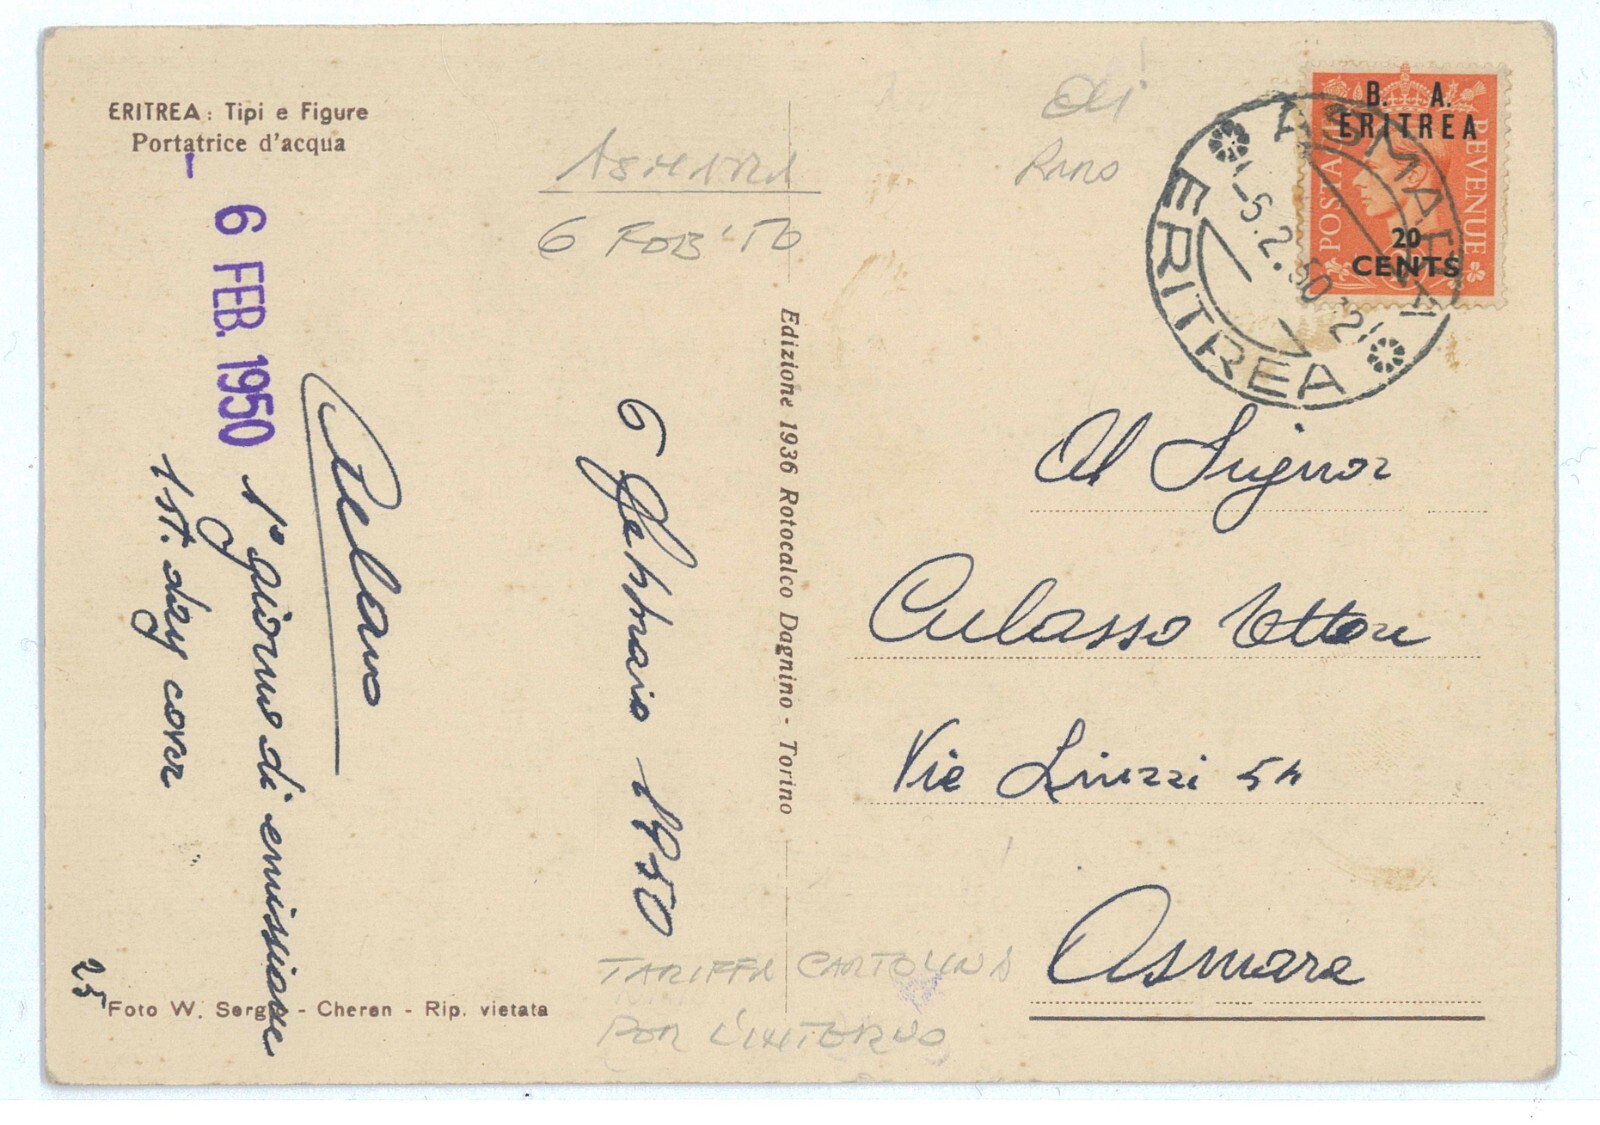 ERITREA: Tipi e Figure
Portatrice d'acqua
- 6 FEB. 1950
1° giorno di emissione
1st. day cover
25
Foto W. - Cheren - Rip. vietata
6 Febbraio 1950
ASMARA
6 FEB '50
Edizione 1936 Rotocalco Dagnino - Torino
TARIFFA CARTOLINA
PER L'INTERNO
RARO
B. A.
ERITREA
POSTAGE REVENUE
20
CENTS
ASMARA
ERITREA
Al Signor
Culasso Ettore
Vie Liuzzi 54
Asmara